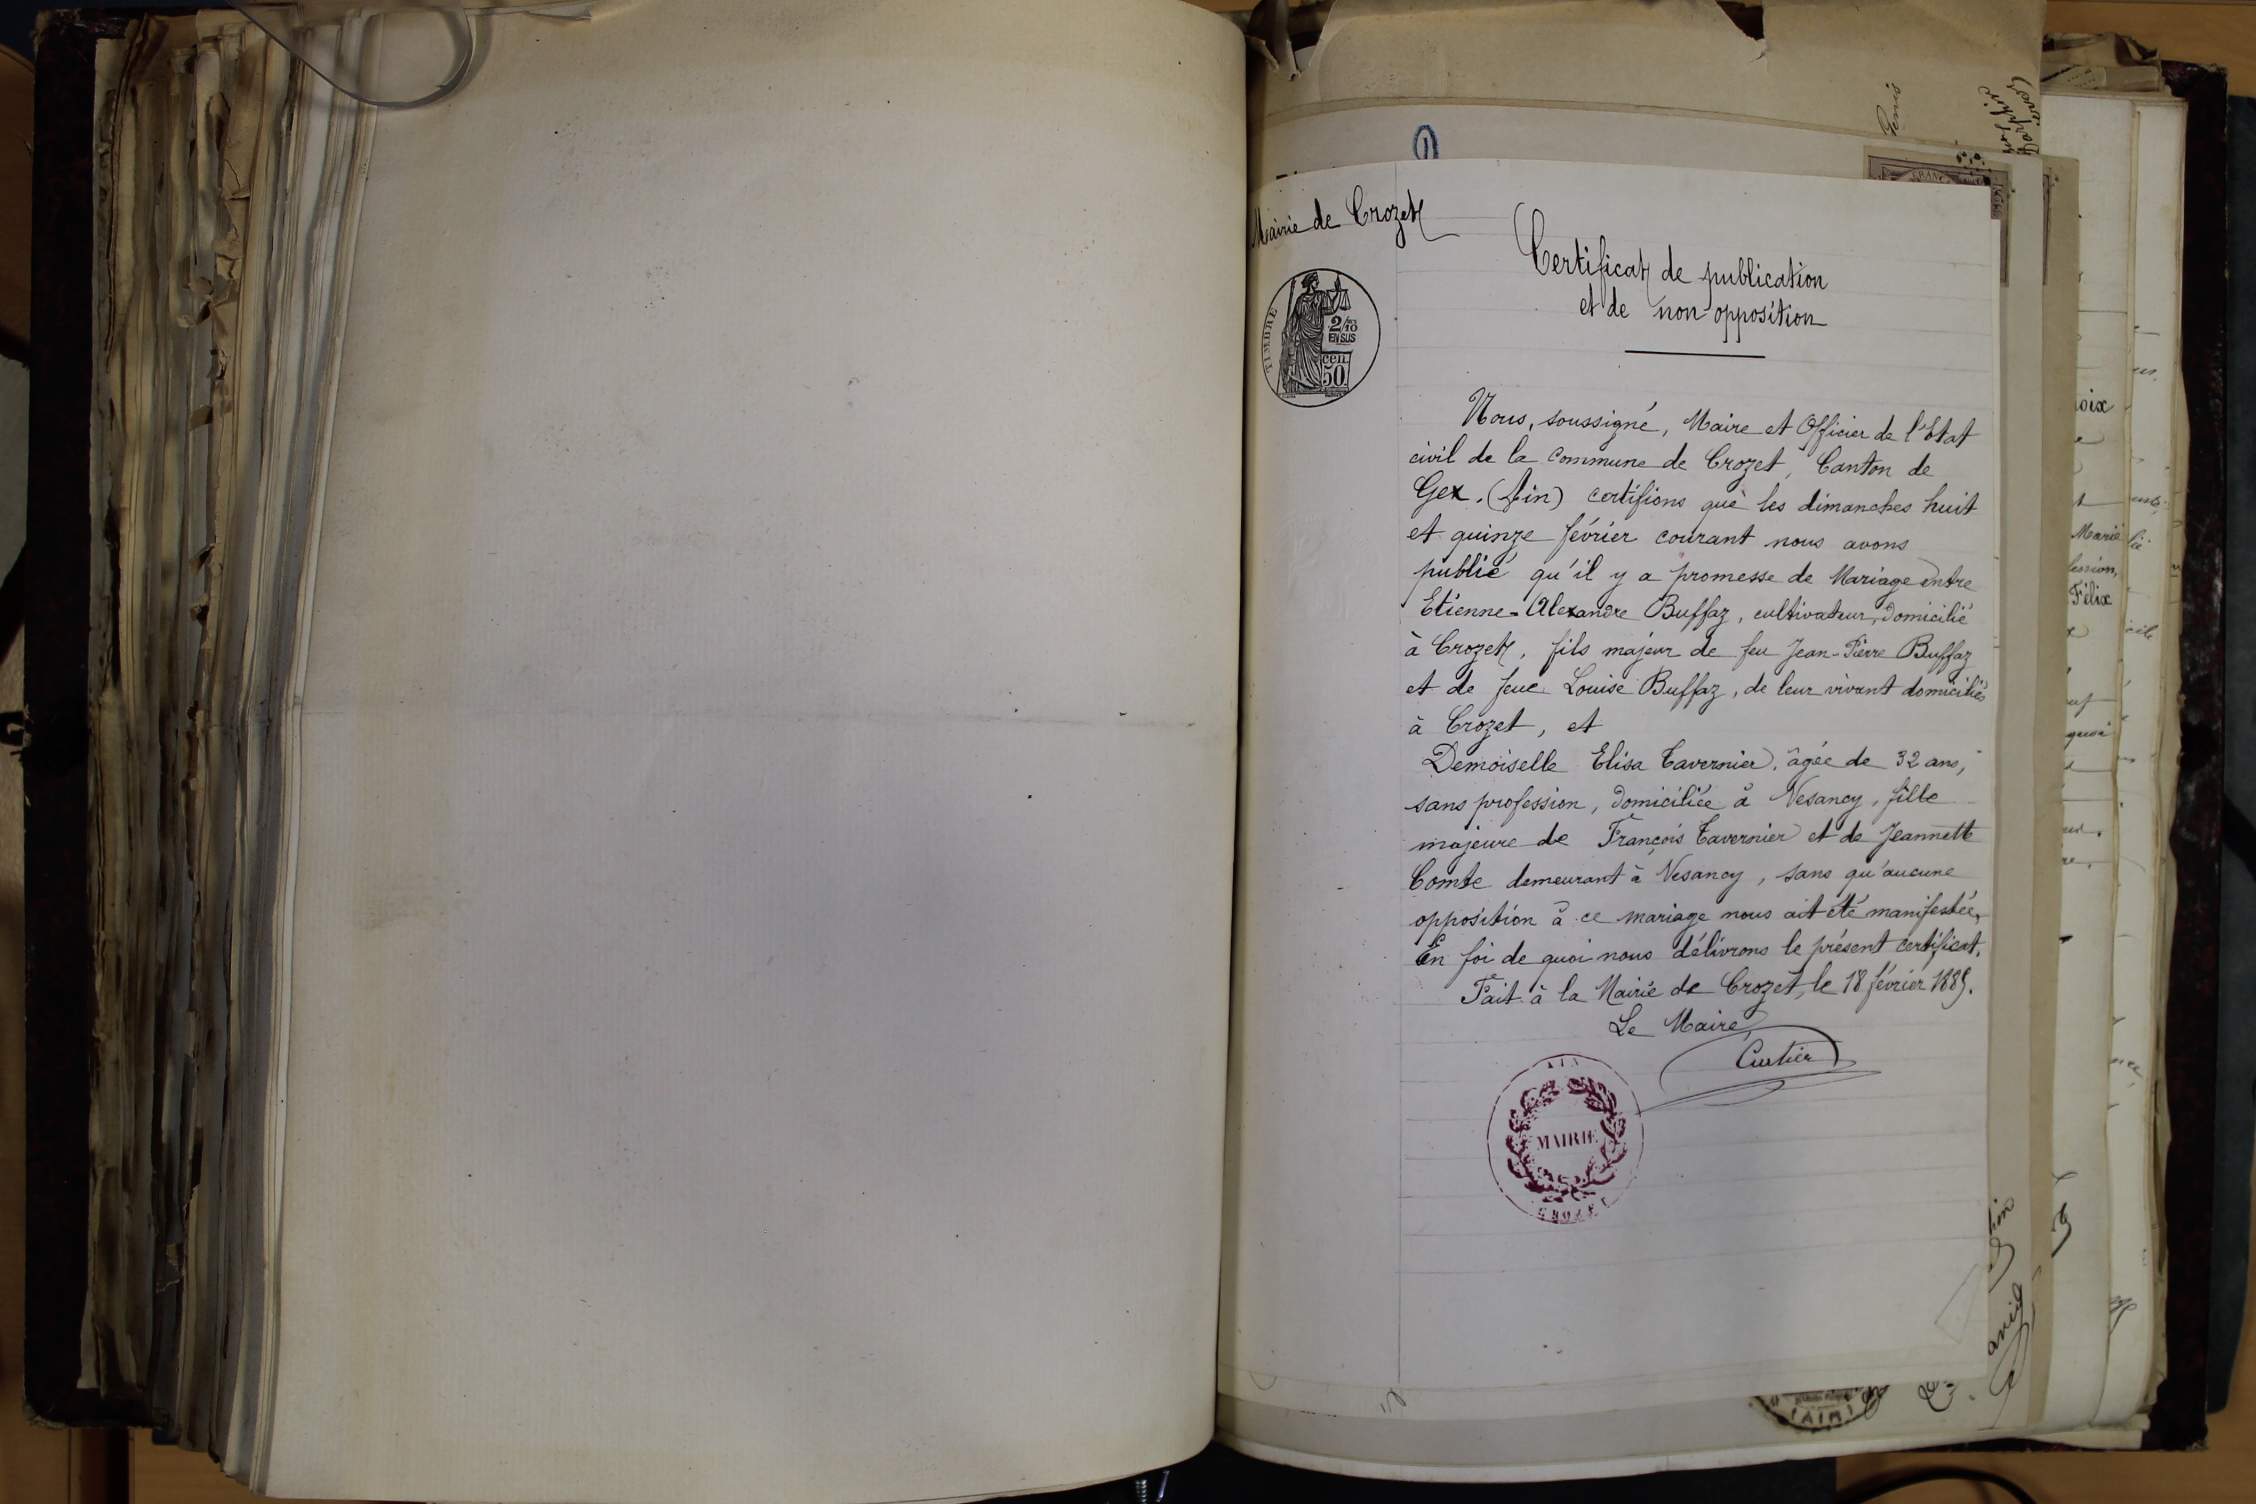 Mairie de Crozet
Certificat de publication
et de non opposition
TIMBRE
2/10
EN SUS
cen
50
Nous, soussigné, Maire et Officier de l'Etat
civil de la Commune de Crozet, Canton de
Gex. (Ain) certifions que les dimanches huit
et quinze février courant nous avons
publié qu'il y a promesse de Mariage entre
Etienne-Alexandre Buffaz, cultivateur, domicilié
à Crozet, fils majeur de feu Jean-Pierre Buffaz
et de feue Louise Buffaz, de leur vivant domiciliés
à Crozet, et
Demoiselle Elisa Tavernier, âgée de 32 ans,
sans profession, domiciliée à Vesancy, fille
majeure de François Tavernier et de Jeannette
Comte demeurant à Vesancy, sans qu'aucune
opposition à ce mariage nous ait été manifestée,
En foi de quoi nous délivrons le présent certificat.
Fait à la Mairie de Crozet, le 18 février 1885.
Le Maire,
AIN
MAIRIE
CROZET
Marie
Félix
(AIN)